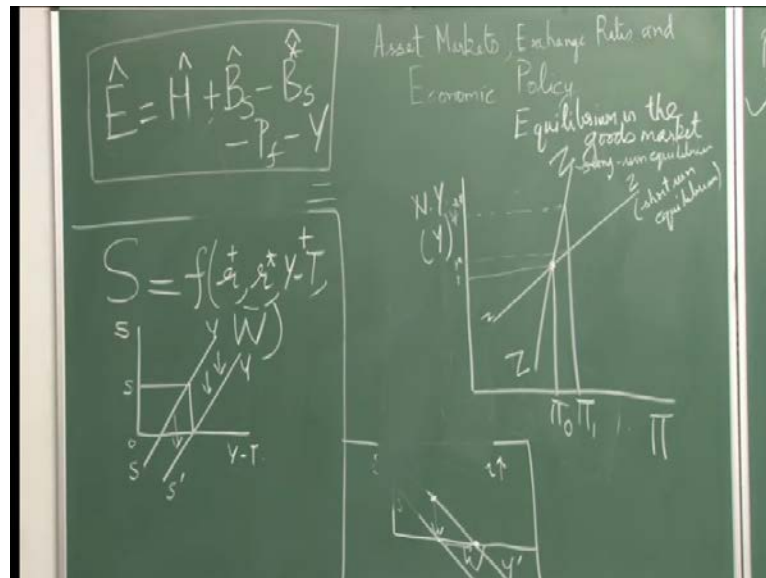 Ê = Ĥ + B̂s - B̂*s
- Pf - Y
Asset Markets, Exchange Rates and
Economic Policy
Equilibrium in the
goods market
long-run equilibrium
z
(short run
equilibrium)
N.Y
(Y)
z
Z
Π₀ Π₁ Π
S = f(r⁺, r*, Y-T⁺,
W̄)
S
Y
Y
S
0
S
S'
Y-T
Y'